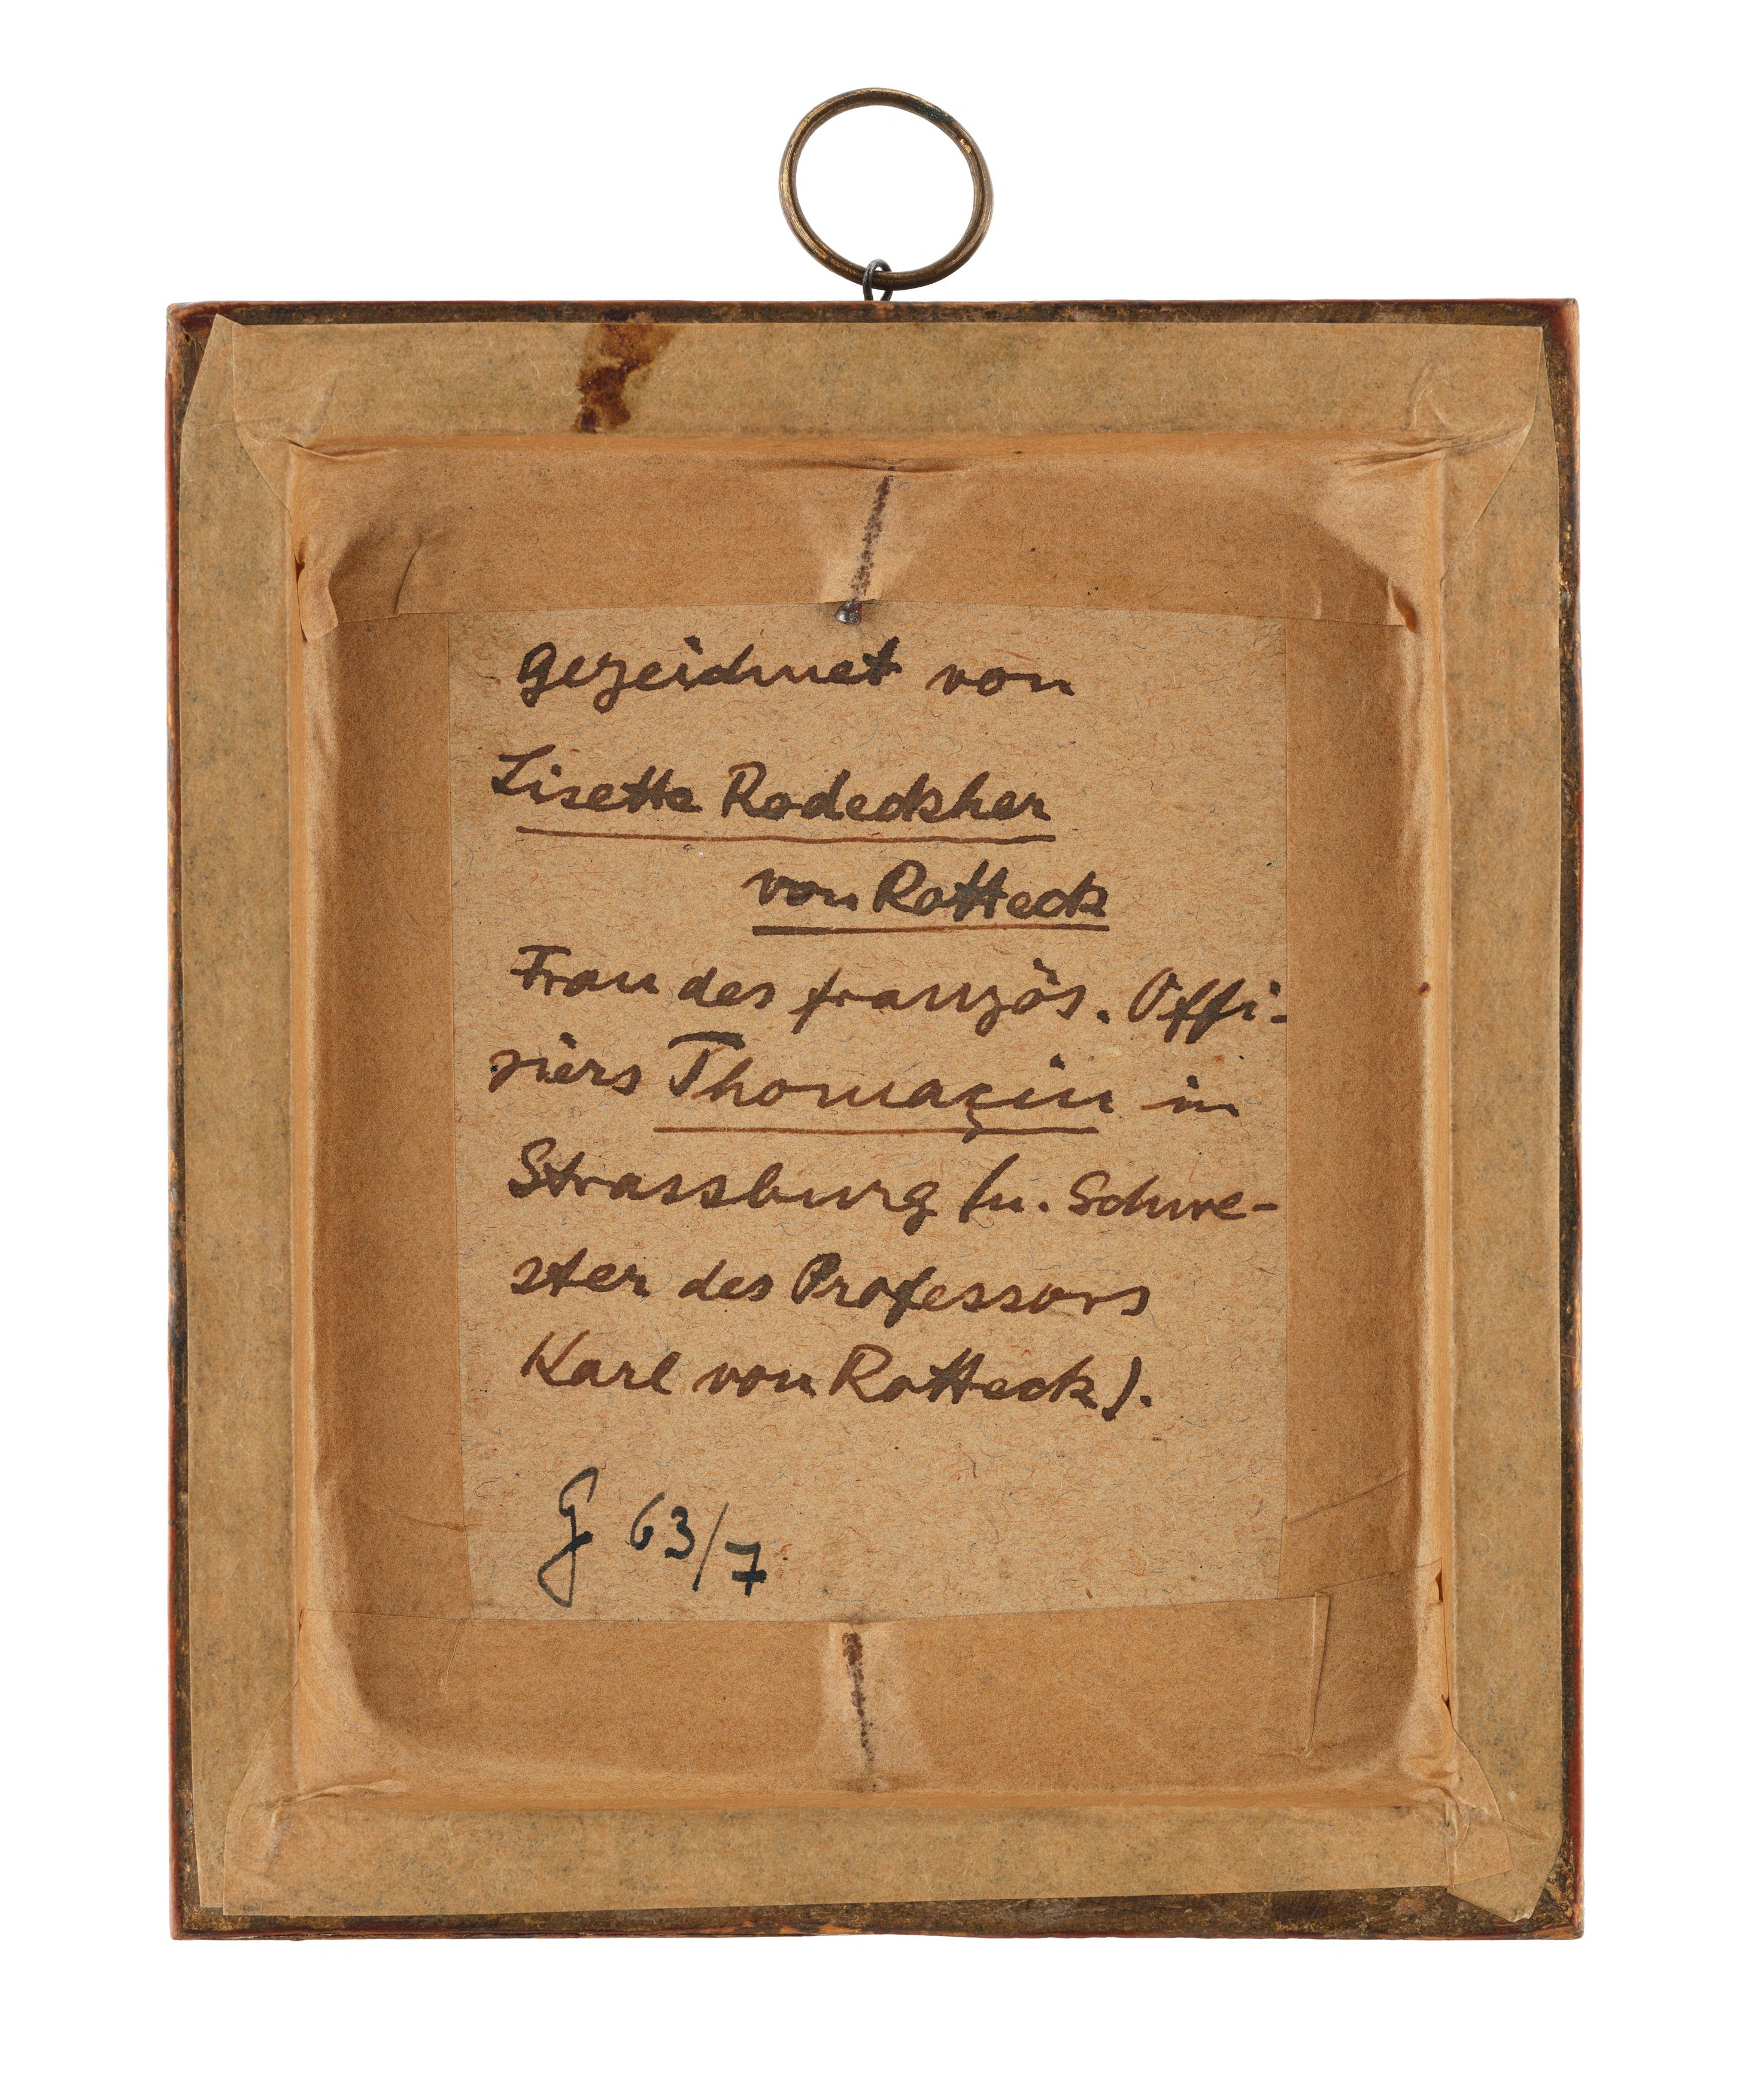 gezeichnet von
Lisette Rodecksher
von Rotteck
Frau des französ. Offi-
ziers Thomaçin in
Strassburg (u. Schwe-
ster des Professors
Karl von Rotteck).
G 63/7